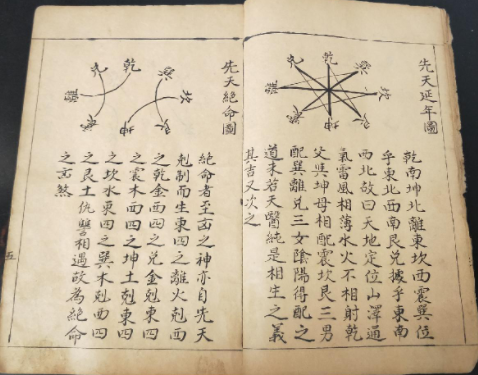 先天延年圖
乾
巽
坎
艮
坤
震
離
兌
乾南坤北離東坎西震巽位
乎東北西南艮兌據乎東南
西北故曰天地定位山澤通
氣雷風相薄水火不相射乾
父與坤母相配震坎艮三男
配巽離兌三女陰陽得配之
道未若天醫純是相生之義
其吉又次之
先天絕命圖
乾
巽
坎
艮
坤
震
離
兌
絕命者至凶之神亦自先天
剋制而生東四之離火剋西
之乾金西四之兌金剋東四
之震木西四之坤土剋東四
之坎水東四之巽木剋西四
之艮土仇讐相遇故為絕命
之凶煞
五